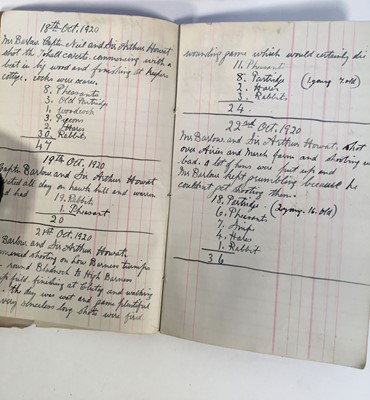 18th Oct. 1920
Mr Barlow Captn Neil and Sir Arthur Howat
shot the Tohill coverts. commencing with a
beat in by wood and finishing at Keepers
cottge. cocks were scarce.
8. Pheasants
3. Old Partridge
1. Woodcock
3. Pigeons
2. Hares
30. Rabbits
47
19th Oct. 1920
Captn Barlow and Sir Arthur Howat
all day on hawk hill and warren
had
19. Rabbit
1. Pheasant
20
21st Oct. 1920
Barlow and Sir Arthur Howat.
shooting on Low Barness turnips
round Bladnoch to High Barness
full. finishing at Clutag and walking
the day was wet and game plentiful
very senseless long shots were fired
wounding game which would certainly die
11. Pheasant
8. Partridge (1 young 7. old)
2. Hares
3. Rabbits
24.
22nd Oct. 1920
Mr Barlow and Sir Arthur Howat. shot
over Airies and Merch farm and shooting was
bad. a lot of birds were put up and
Mr Barlow kept grumbling because he
couldnt get shooting them.
18. Partridge. (2 young. 16. old)
6. Pheasant.
7. Snipe
4. Hares
1. Rabbit
36